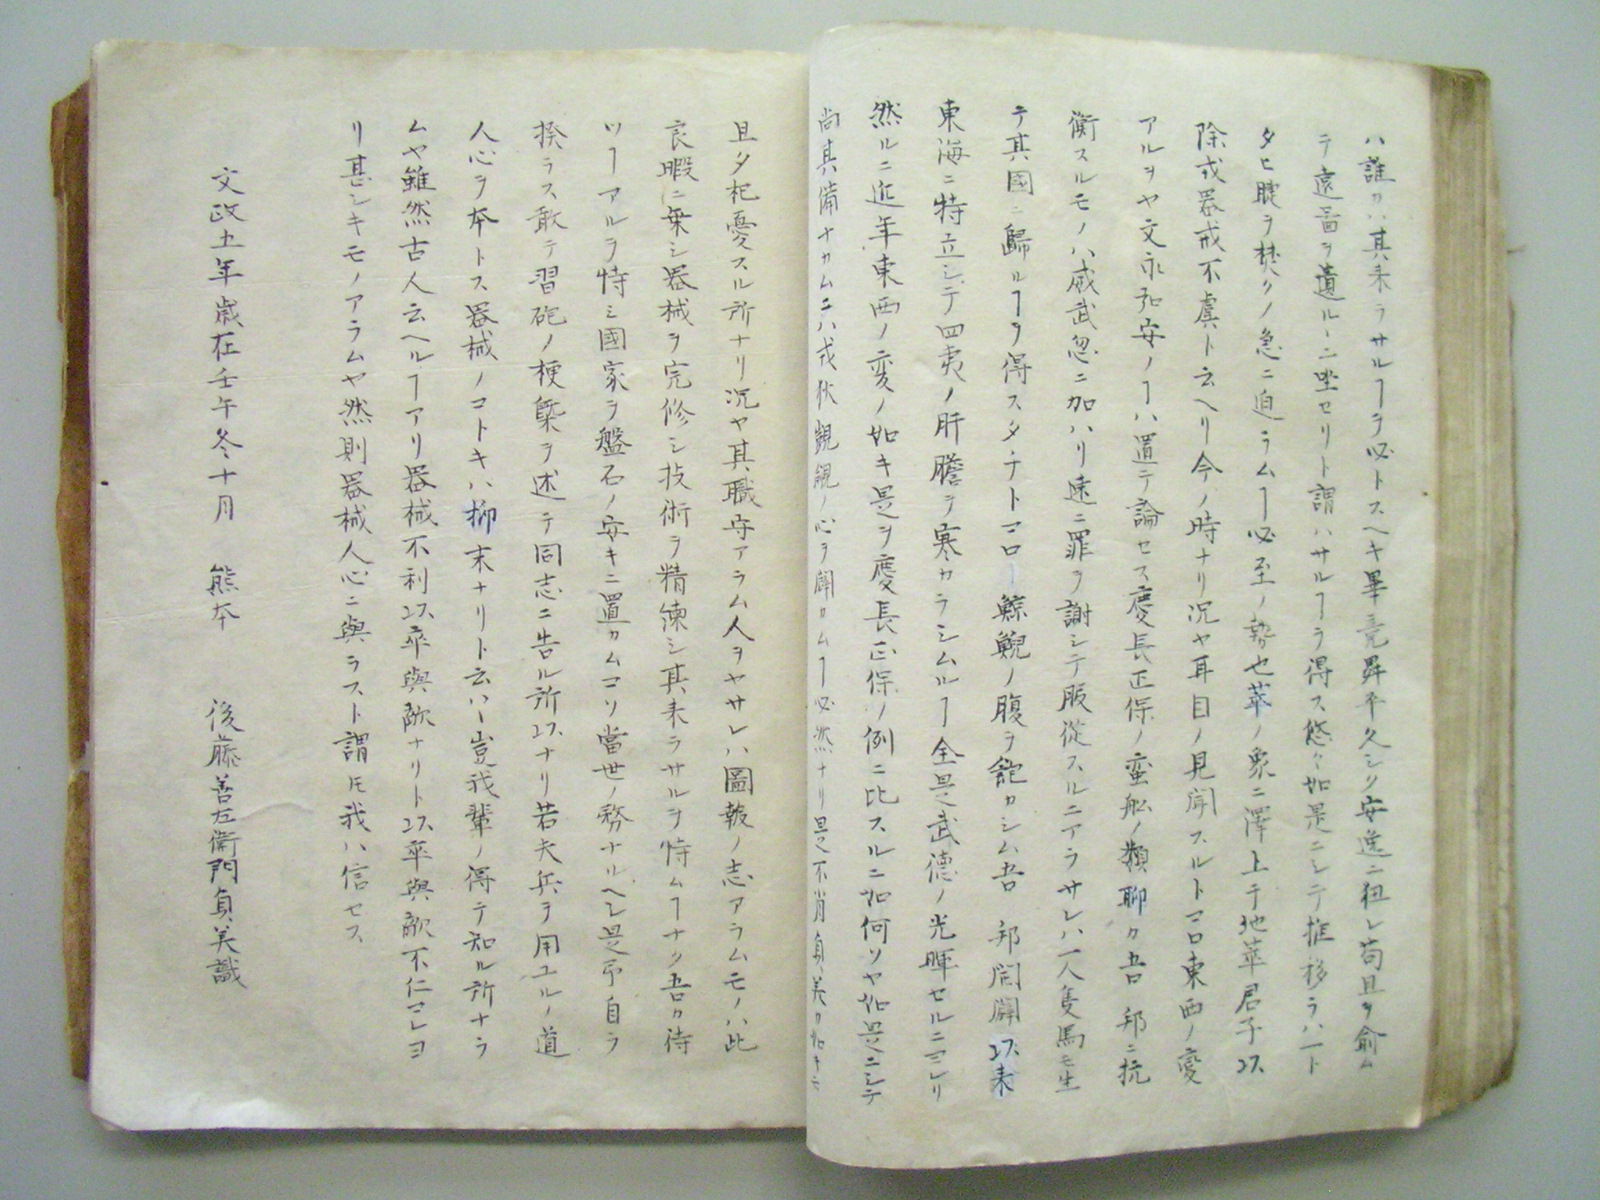 ハ誰カハ其来ラサルヿヲ必トスヘキ畢竟昇平久シク安逸ニ狃レ苟且ヲ偷ム
テ遠啚ヲ遺ルヽニ坐セリト謂ハサルヿヲ得ス悠々如是ニシテ推移ラハ一ト
タヒ臍ヲ焚クノ急ニ迫ラムヿ必至ノ勢也萃ノ象ニ澤上于地萃君子以
除戎器戒不虞ト云ヘリ今ノ時ナリ況ヤ耳目ノ見聞スルトコロ東西ノ変
アルヲヤ文永弘安ノヿハ置テ論セス慶長正保ノ蛮舩ノ類聊カ吾邦ニ抗
衡スルモノハ威武忽ニ加ハリ速ニ罪ヲ謝シテ服從スルニアラサレハ一人隻馬モ生
テ其國ニ歸ルヿヲ得スタチトコロニ鯨鯢ノ腹ヲ飽カシム吾 邦開闢以来
東海ニ特立シテ四夷ノ肝膽ヲ寒カラシムルヿ全是武德ノ光暉セルニヨレリ
然ルニ近年東西ノ変ノ如キ是ヲ慶長正保ノ例ニ比スルニ如何ソヤ如是ニシテ
尚其備ナカムニハ戎狄覬覦ノ心ヲ開カムヿ必然ナリ是不肖員美カ如キモ
且夕杞憂スル所ナリ況ヤ其職守アラム人ヲヤサレハ圖報ノ志アラムモノハ此
良暇ニ乗シ器械ヲ完修シ技術ヲ精練シ其来ラサルヲ恃ムヿナク吾カ待
ツヿアルヲ恃ミ國家ヲ盤石ノ安キニ置カムコソ當世ノ務ナルヘシ是予自ラ
揆ラス敢テ習砲ノ梗槩ヲ述テ同志ニ告ル所以ナリ若夫兵ヲ用ユルノ道
人心ヲ本トス器械ノコトキハ抑末ナリト云ハヽ豈我輩ノ得テ知ル所ナラ
ムヤ雖然古人云ヘルヿアリ器械不利以卒與敵ナリト以卒與敵不仁コレヨ
リ甚シキモノアラムヤ然則器械人心ニ與ラスト謂𪜈我ハ信セス
文政五年歳在壬午冬十月 熊本 後藤善左衛門員美識